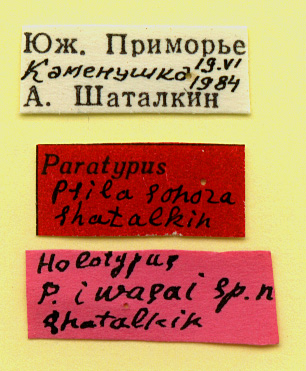 Юж. Приморье
Каменушка 19.VI
1984
А. Шаталкин
Paratypus
Psila sonora
Shatalkin
Holotypus
P. iwasai sp.n
Shatalkin